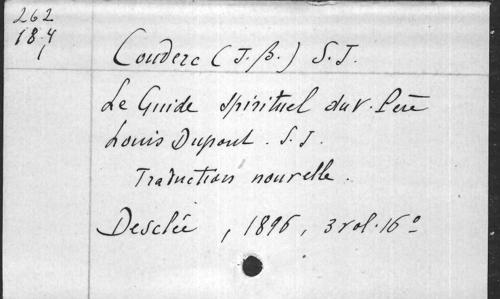 262
18.4
1
Couderc (J.B.) S.J.
Le Guide spirituel du V. Père
Louis Dupont. S.J.
Traduction nouvelle.
Desclée, 1896, 3 vol. 16°